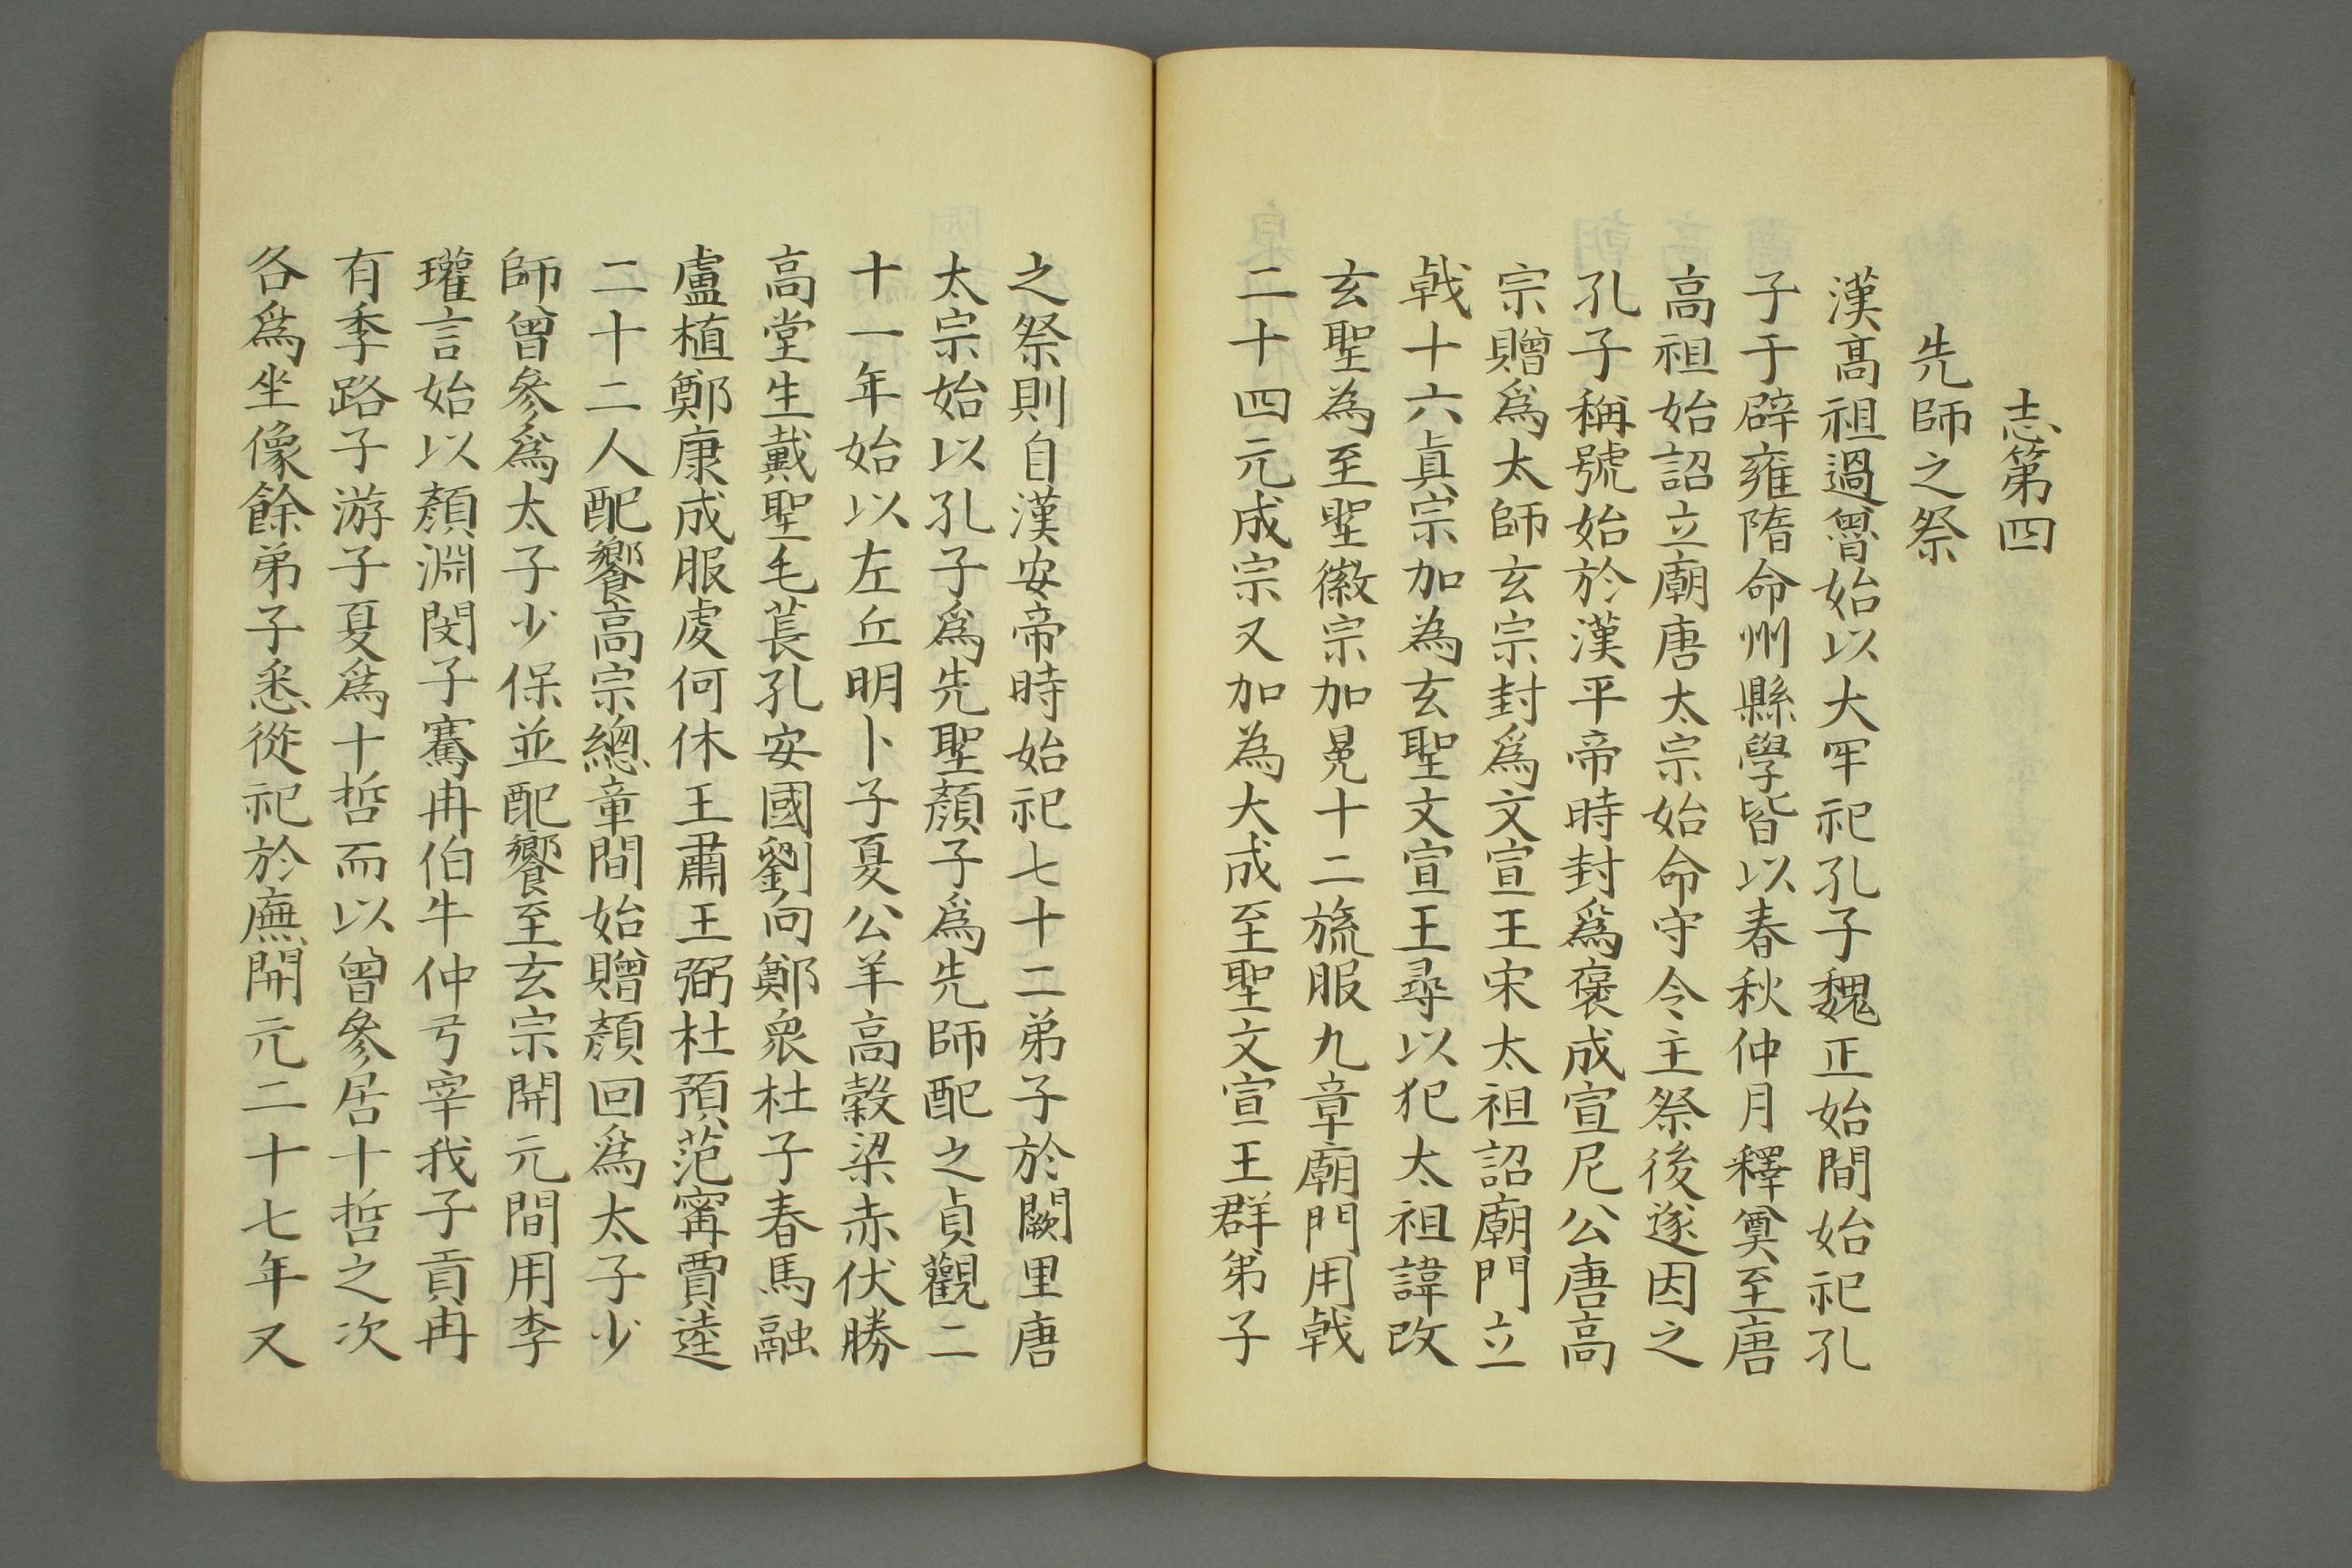 志第四
先師之祭
漢高祖過魯始以大牢祀孔子魏正始間始祀孔
子于辟雍隋命州縣學皆以春秋仲月釋奠至唐
高祖始詔立廟唐太宗始命守令主祭後遂因之
孔子稱號始於漢平帝時封爲褒成宣尼公唐高
宗贈爲太師玄宗封爲文宣王宋太祖詔廟門立
戟十六眞宗加為玄聖文宣王尋以犯太祖諱改
玄聖為至聖徽宗加冕十二旒服九章廟門用戟
二十四元成宗又加為大成至聖文宣王群弟子
之祭則自漢安帝時始祀七十二弟子於闕里唐
太宗始以孔子爲先聖顏子爲先師配之貞觀二
十一年始以左丘明卜子夏公羊高穀梁赤伏勝
高堂生戴聖毛萇孔安國劉向鄭衆杜子春馬融
盧植鄭康成服虔何休王肅王弼杜預范甯賈逵
二十二人配饗高宗總章間始贈顏回爲太子少
師曾參爲太子少保並配饗至玄宗開元間用李
瓘言始以顏淵閔子騫冉伯牛仲弓宰我子貢冉
有季路子游子夏爲十哲而以曾參居十哲之次
各爲坐像餘弟子悉從祀於廡開元二十七年又